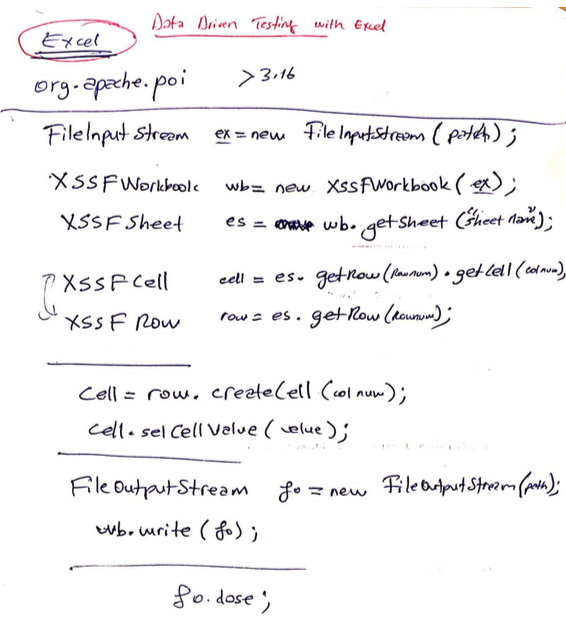 Data Driven Testing with Excel
Excel
org.apache.poi >3.16
FileInputStream ex = new FileInputStream (path);
XSSFWorkbook wb = new XSSFWorkbook (ex);
XSSFSheet es = wb.getSheet ("Sheet Name");
XSSFCell cell = es. getRow (Rownum) . getCell (colnum),
XSSF Row row = es . getRow (Rownum);
Cell = row. createCell (col num);
Cell. setCellValue ( value );
FileOutputStream fo = new FileOutputStream (path);
wb.write (fo) ;
fo.close ;